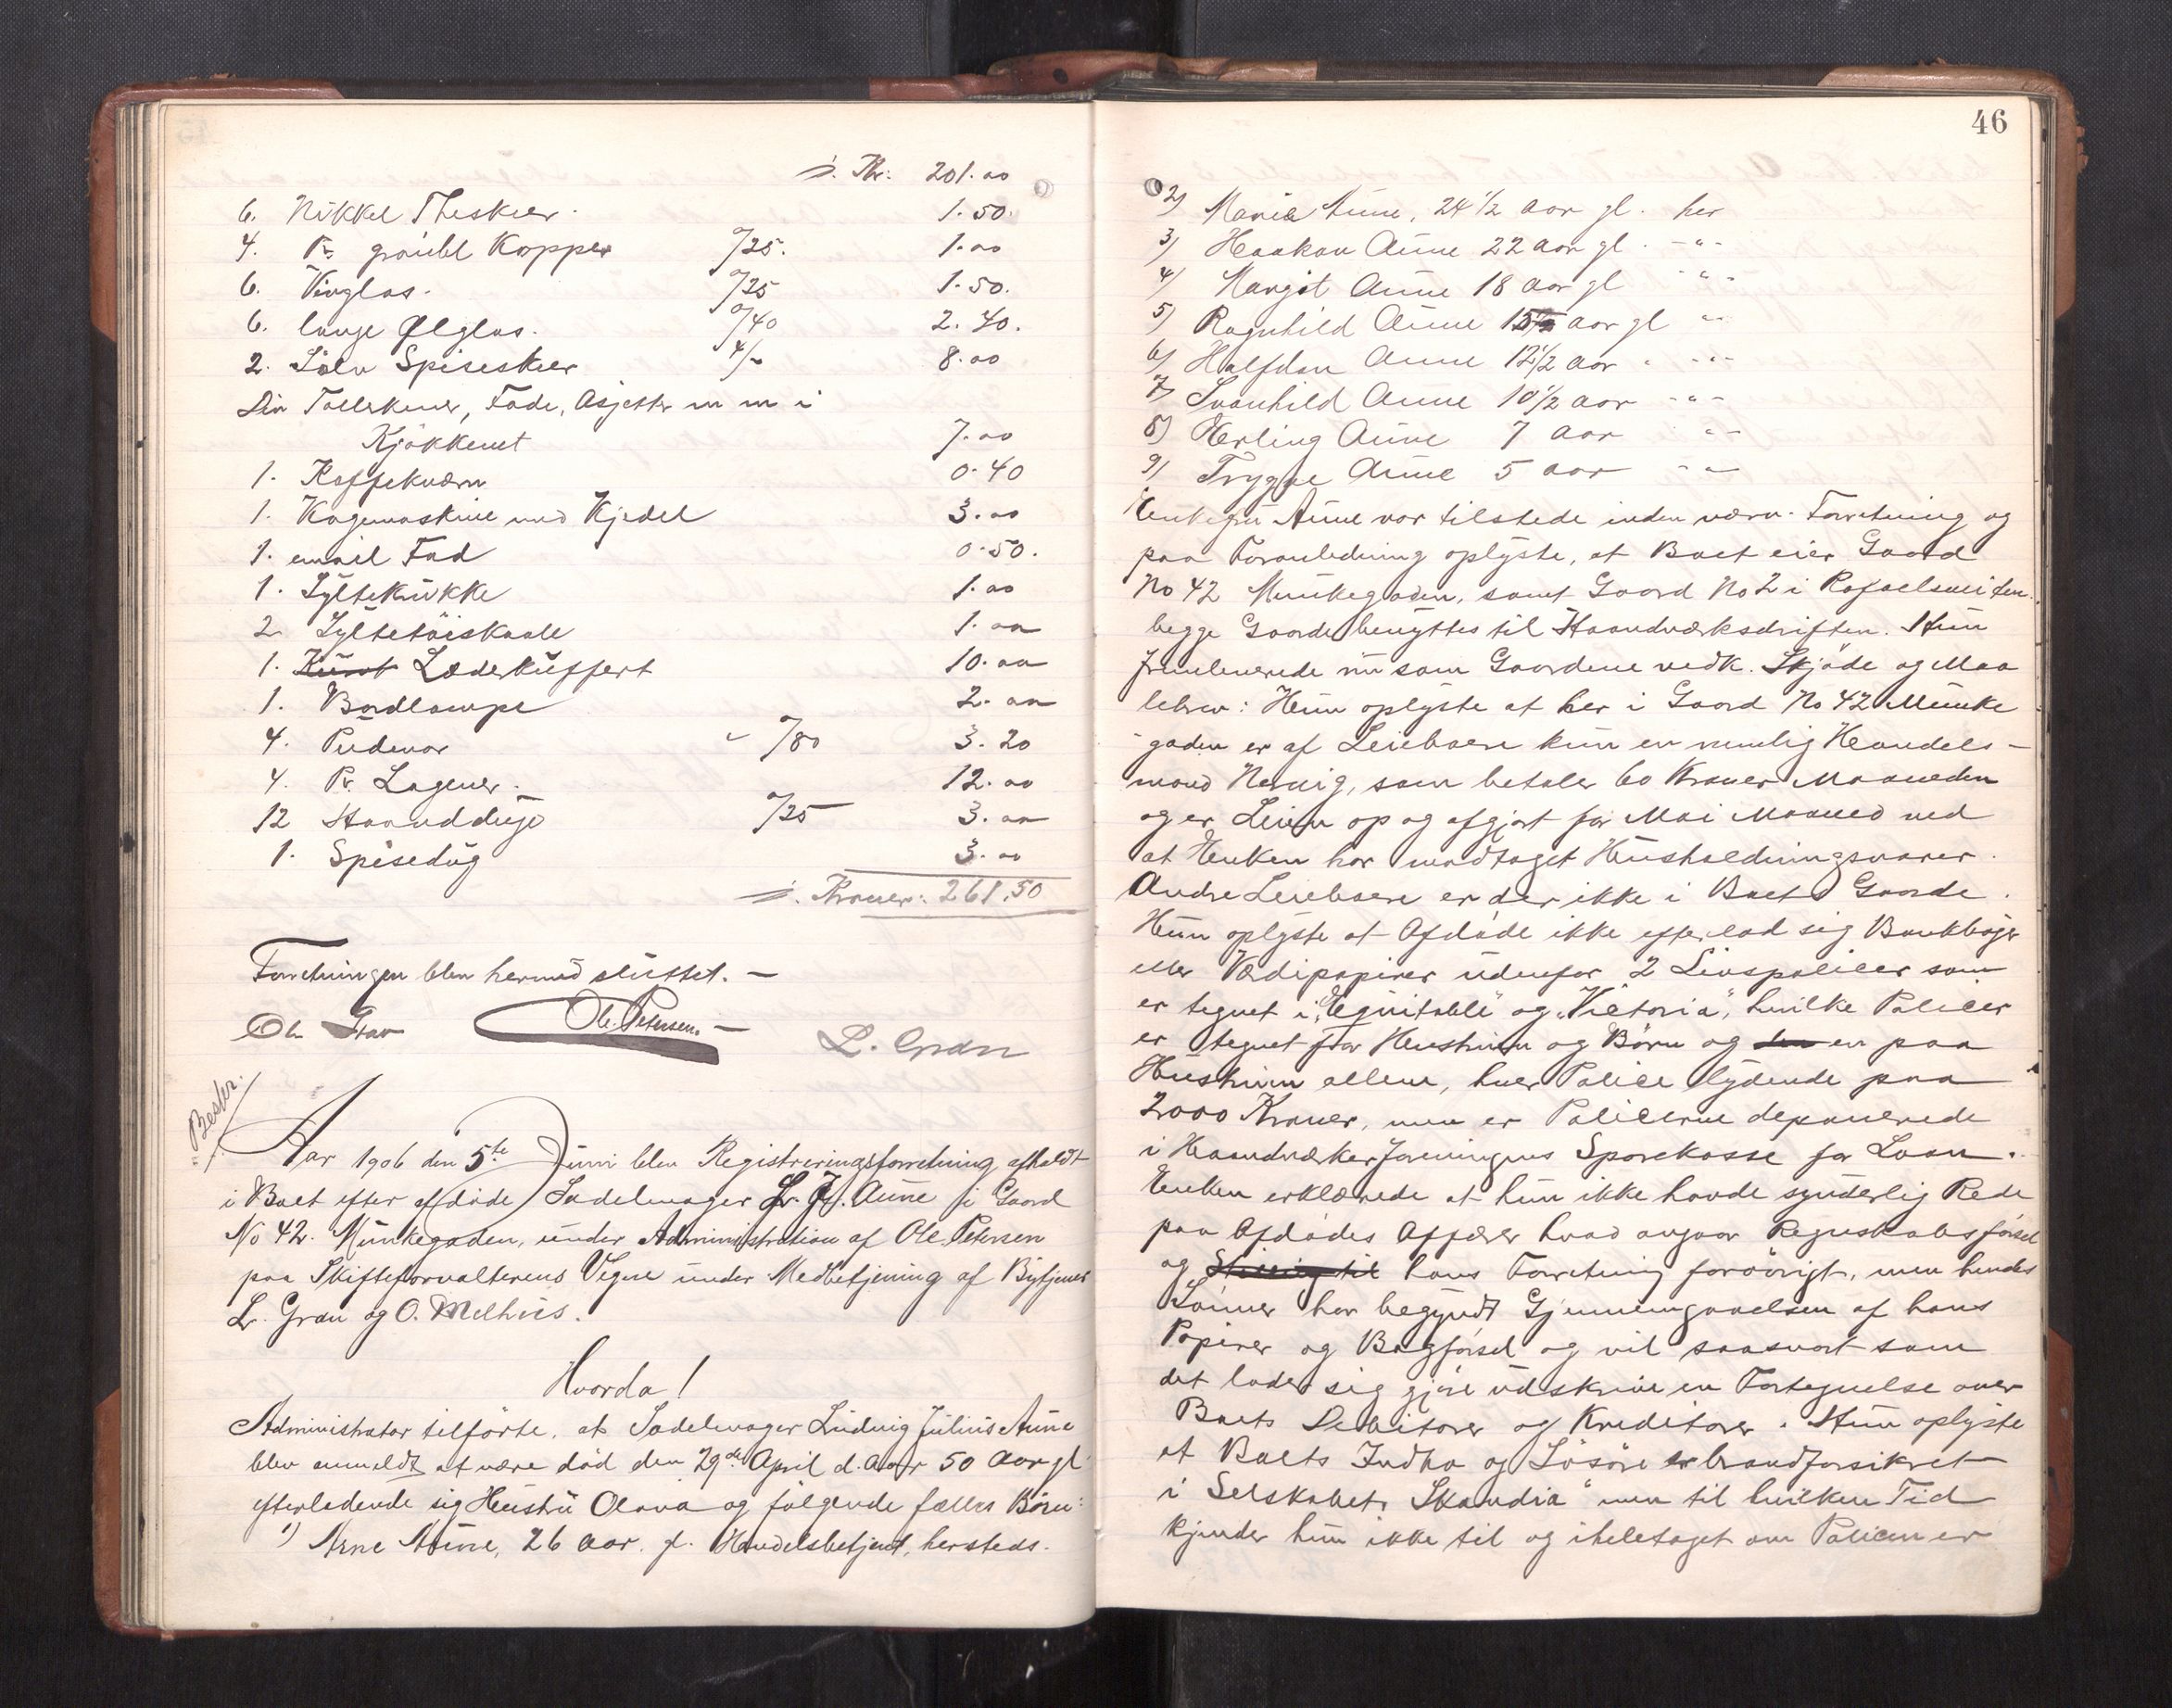 s. Kr: 201.00
6. Nikkel Theskeer. 1.50.
4. Pr. Kopper 0/25. 1.00
6. Vinglas. 0/25 1.50.
6. lange Ølglas. 0/40 2.40.
2. Sölv Spiseskeer 4/- 8.00
Div Tallekener, Fade, Asjetter m m i
Kjökkenet 7.00
1. Kaffekværn 0.40
1. Kogemaskine med Kjedel 3.00
1. email Fad 0.50.
1. Syltekrukke 1.00
2 Syltetöiskaale 1.00
1. Læderkuffert 10.00
1. Bordlampe 2.00
4. Pudevar - 0/80 3.20
4. Pr Lagener. 12.00
12 Haandduge 0/25 3.00
1. Spisedug 3.00
s. Kroner: 261.50
Forretningen blev hermed sluttet. —
Ole Petersen. — L. Gran
Beskr.
Aar 1906 den 5te Juni blev Registreringsforretning afholdt
i Boet efter afdöde Sadelmager L. J. Aune i Gaard
No 42. Munkegaden, under Administration af Ole Petersen
paa Skifteforvalterens Vegne under Medbetjening af Bytjener
L. Gran og O. Melhus.
Hvorda!
Administrator tilförte, at Sadelmager Ludvig Julius Aune
blev anmeldt at være död den 29de April d. Aar 50 Aar gl
efterladende sig Hustru Olava og fölgende fælles Börn:
1) Arne Aune, 26 Aar. gl. Handelsbetjent, hersteds.
46
2) Maria Aune, 24 1/2 Aar gl. her
3) Haakon Aune 22 Aar gl. -"-
4) Margit Aune 18 Aar gl -"-
5) Ragnhild Aune 15 Aar gl -"-
6) Halfdan Aune 12 1/2 Aar -"-
7) Svanhild Aune 10 1/2 Aar -"-
8) Herling Aune 7 Aar -"-
9) Trygve Aune 5 Aar -"-
Enkefru Aune var tilstede inden nærv. Forretning og
paa Foranledning oplyste, at Boet eier Gaard
No 42 Munkegaden, samt Gaard No 2 i
begge Gaarde benyttes til Haandværksdriften. Hun
fremleverede nu som Gaardene vedk. Skjöde og Maa
lebrev: Hun oplyste at her i Gaard No 42 Munke
-gaden er af Leieboere kun en nemlig Handels-
mand, som betaler 60 Kroner Maaneden
og er Leien op og afgjort for Mai Maaned ved
at Enken har modtaget Husholdningsvarer.
Andre Leieboere er der ikke i Boets Gaarde.
Hun oplyste at Afdöde ikke efterlod sig Bankböger
eller Værdipapirer udenfor 2 Livspolicer som
er tegnet i "Equitable" og "Victoria", hvilke Policer
er tegnet for Hustruen og Börn og en paa
Hustruen allene, hver Police lydende paa
2000 Kroner, men er Policerne deponerede
i Haandværkerforeningens Sparekasse for Laan.
Enken erklærede at hun ikke havde synderlig Rede
paa Afdödes Affærer hvad angaar Regnskabsförsel
og Stilling til hans Forretning forövrigt, men hendes
Sönner har begyndt Gjennemgaaelsen af hans
Papirer og Bogförsel og vil saasnart som
det lader sig gjöre udskrive en Fortegnelse over
Boets Debitorer og Kreditorer. Hun oplyste
at Boets Indbo og Lösöre er brandforsikret
i Selskabet "Skandia" men til hvilken Tid
kjender hun ikke til og iheletaget om Policen er